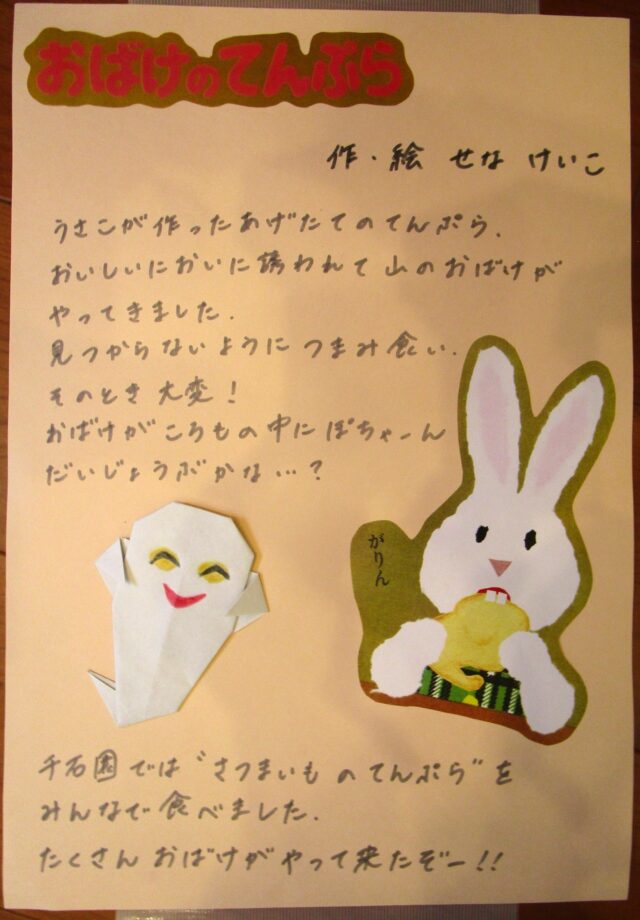 おばけのてんぷら
作・絵 せな けいこ
うさこが作ったあげたてのてんぷら.
おいしいにおいに誘われて山のおばけが
やってきました.
見つからないように つまみ食い.
そのとき大変!
おばけがころもの中にぽちゃーん
だいじょうぶかな…?
がりん
千石園では"さつまいものてんぷら"を
みんなで食べました.
たくさんおばけがやって来たぞー!!